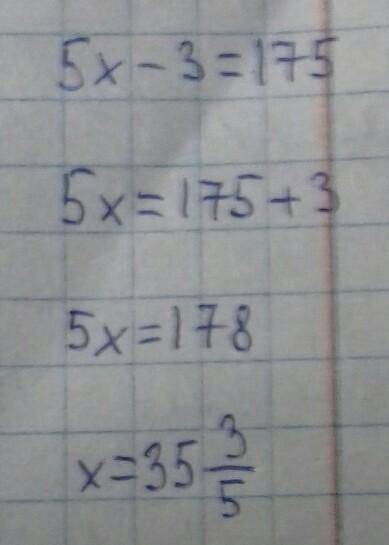 5x - 3 = 175
5x = 175 + 3
5x = 178
x = 35 3/5